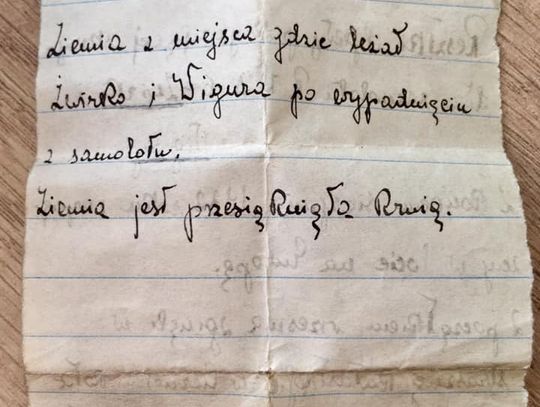 Ziemia z miejsca gdzie leżał
Żwirko i Wigura po wypadnięciu
z samolotu.
Ziemia jest przesiąknięta krwią.